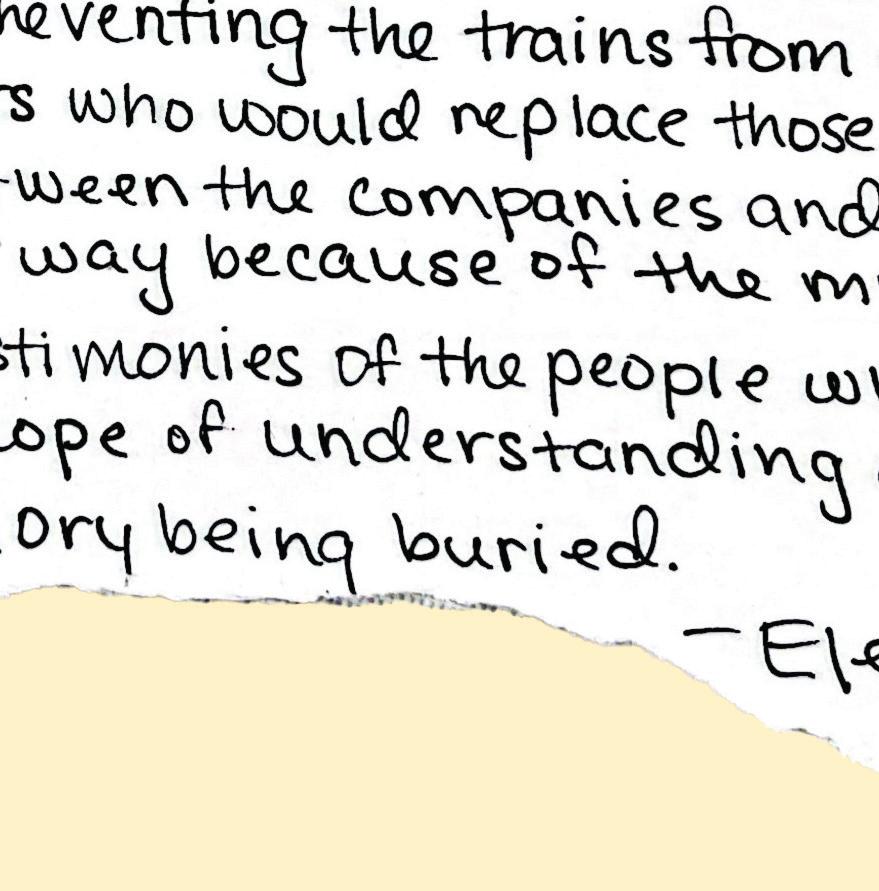 reventing the trains from
rs who would replace those
tween the companies and
way because of the m
stimonies of the people w
cope of understanding
ory being buried.
-Ele